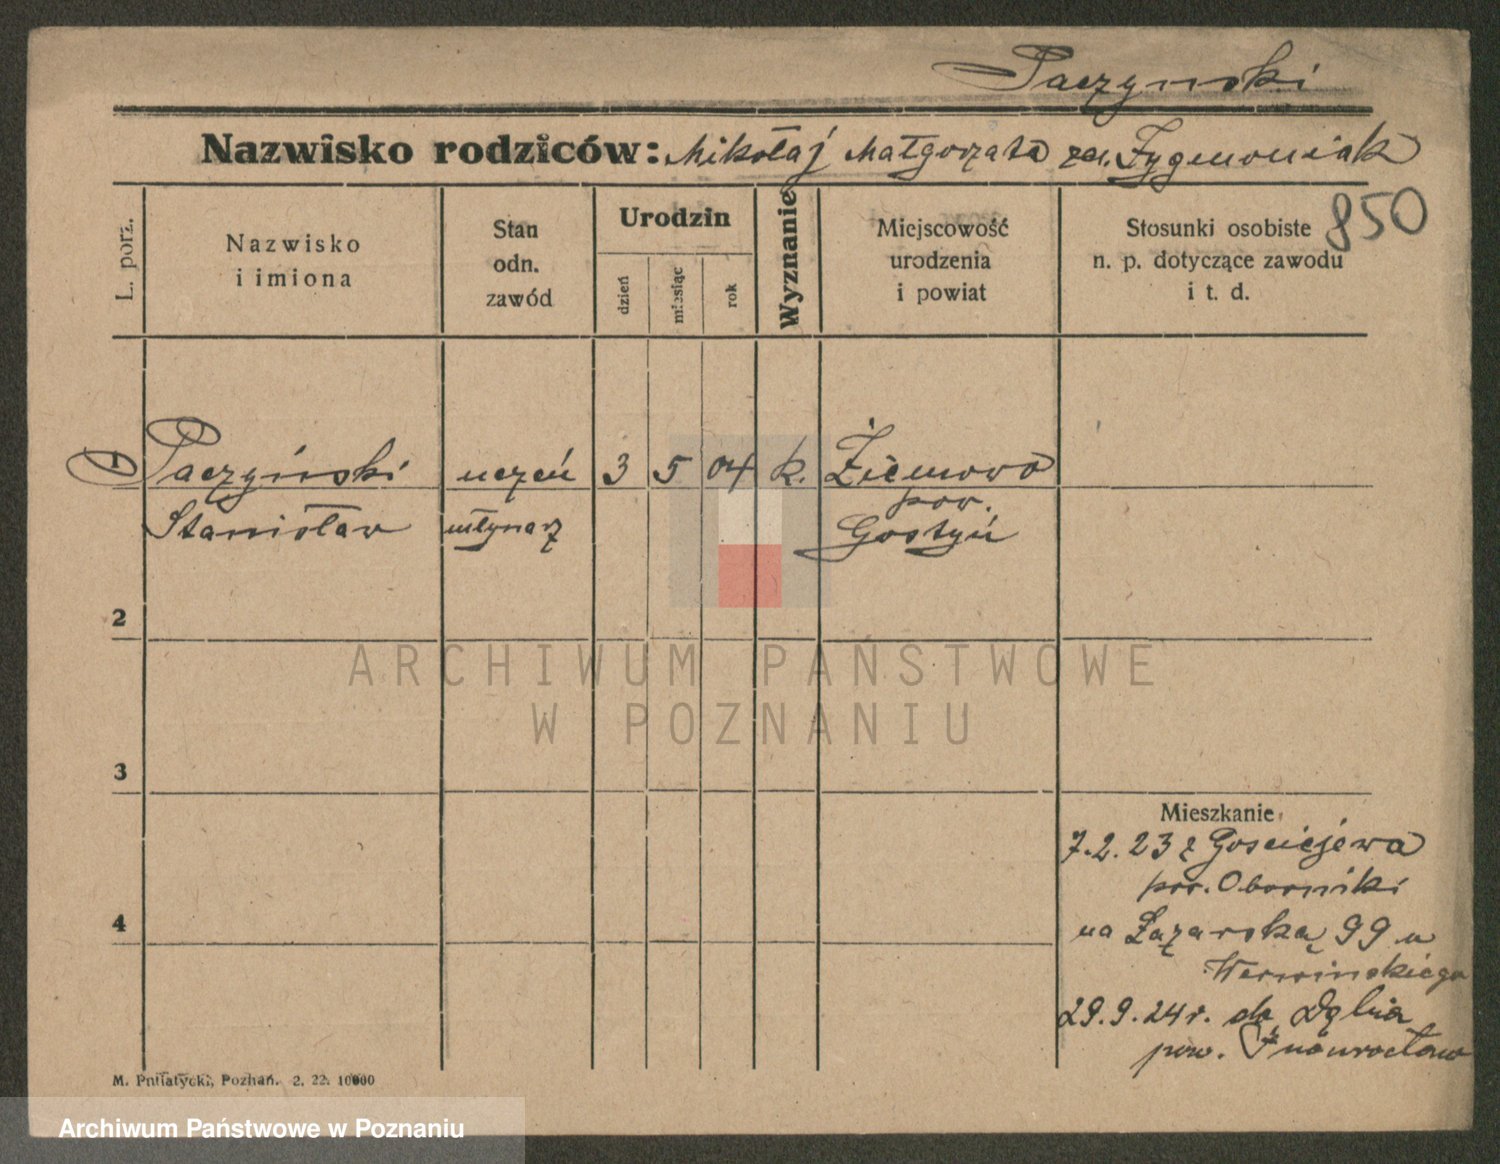 Paczynski
Nazwisko rodziców: Mikołaj Małgorzata za. Zygmoniak
850
L. porz.
Nazwisko i imiona
Stan odn. zawód
Urodzin
dzień
miesiąc
rok
Wyznanie
Miejscowość urodzenia i powiat
Stosunki osobiste n. p. dotyczące zawodu i t. d.
1 Paczyński uczeń 3 5 04 k. Żiemowo
pow.
Stanisław młynarz Gostyń
2
ARCHIWUM PAŃSTWOWE
W POZNANIU
3
Mieszkanie
7.2.23 z Gosciejewa
pow. Oborniki
4
na Łazarską 99 u
29.9.24 r. do
pow. Inowrocław
M. Pniiatycki, Poznań. 2. 22. 10000
Archiwum Państwowe w Poznaniu